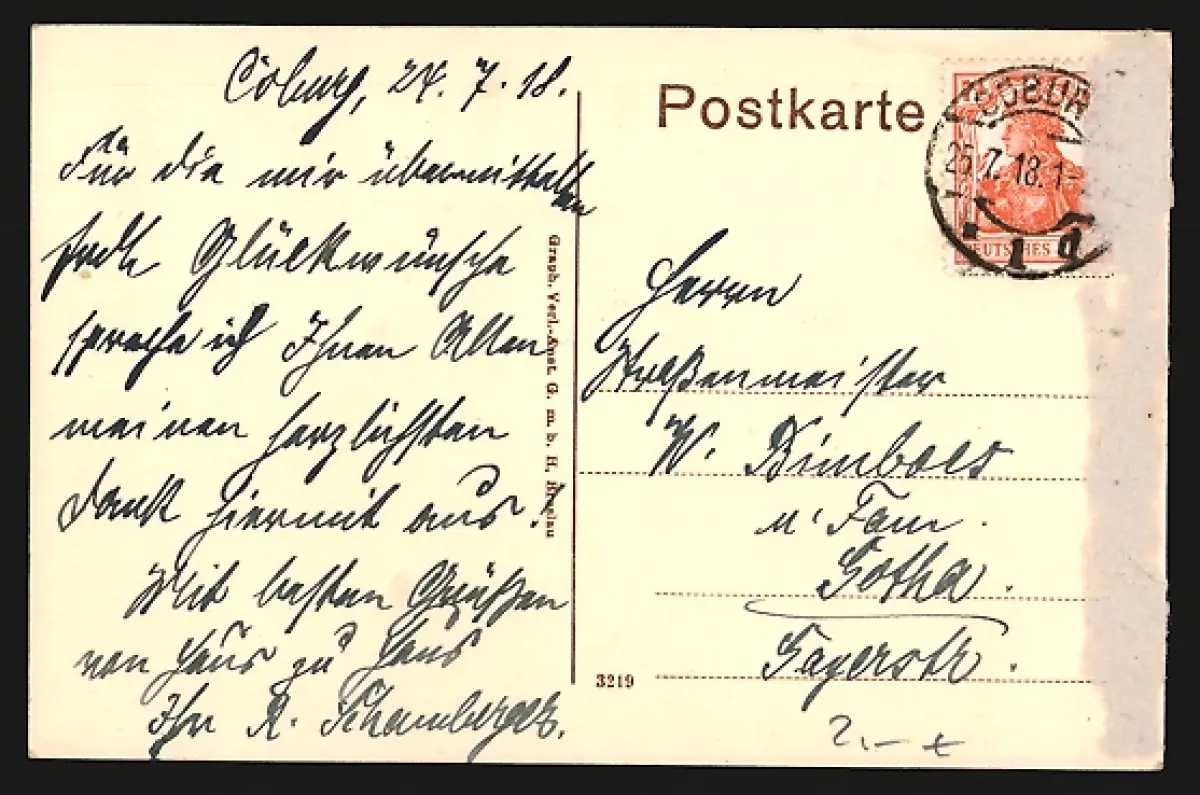 Coburg, 24. 7. 18.
Für die mir übermittelten
Glückwünsche
spreche ich Ihnen Allen
meinen herzlichsten
Dank hiermit aus!
Mit besten Grüßen
von Haus zu Haus
Ihr R. Schamberger.
Postkarte
COBUR
25.7.18.1-
1 d
DEUTSCHES
Graph. Verl.-Anst. G. m. b. H. Breslau
Herrn
Straßenmeister
W. Bimboes
u. Fam.
Gotha.
Gayerstr.
3219
2,-